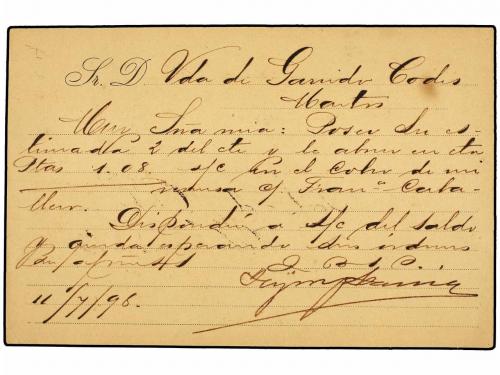 Sr. D. Vda de Garrido Codes
Martos
Muy Sra mia: Poseo su es-
timada 2 del cte y le abono en cta
Ptas 1.08. s/c en el cobro de mi
remesa c/ Franco Caba-
llero.
Dispondrá a s/c del saldo
y queda esperando sus ordenes
11/7/96.